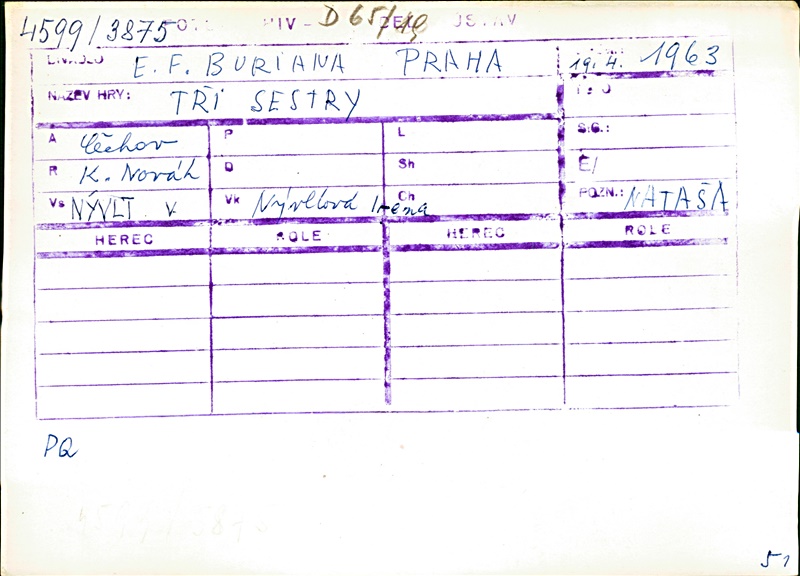 4599/3875 D 65/
E. F. BURIANA PRAHA 19. 4. 1963
NÁZEV HRY: TŘI SESTRY
A Čechov P L S.G.:
R K. Novák D Sh Č/
Vs NÝVLT V. Vk Nývltová Irena Ch POZN.: NATAŠA
HEREC ROLE HEREC ROLE
PQ
51